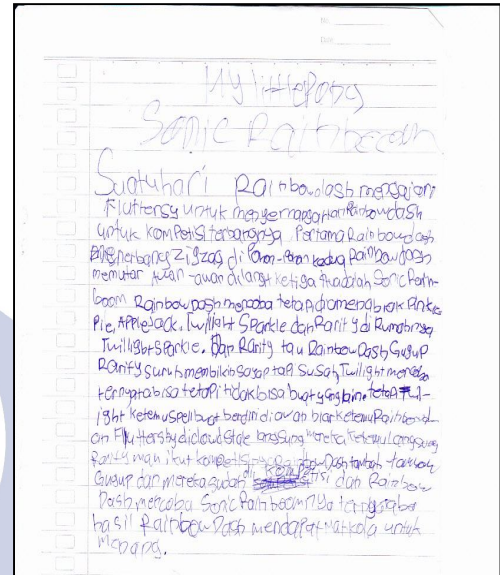 No.
Date
My little Pony
Sonic Rainbooom
Suatu hari Rainbow dash mengajari
Fluttersy untuk menyemangatkan Rainbow dash
untuk kompetisi terbangnya Pertama Rainbow dash
terbang zigzag di Pohon-Pohon kedua Rainbow dash
memutar Awan-awan dilangit ketiga adalah Sonic Rain
boom Rainbow Dash mencoba tetapi dia menabrak Pinkie
Pie, AppleJack, Twilight SParkle dan Rarity di Rumahnya
Twilight SParkle. Dan Rarity tau Rainbow Dash Gugup
Rarity suruh membikin sayap tapi susah Twilight mencoba
ternyata bisa tetapi tidak bisa buat yang laine tetapi Twil-
ight ketemu spell buat berdiri di awan biar ketemu Rainbow d
an Fluttershy di cloudsdale langsung mereka ketemu langsung
Rarity mau ikut kompetisi Rainbow Dash tambah tambah
Gugup dan mereka sudah di kompetisi dan Rainbow
Dash mencoba Sonic Rainboomnya ternyata ber
hasil Rainbow Dash mendapat mahkota untuk
menang.